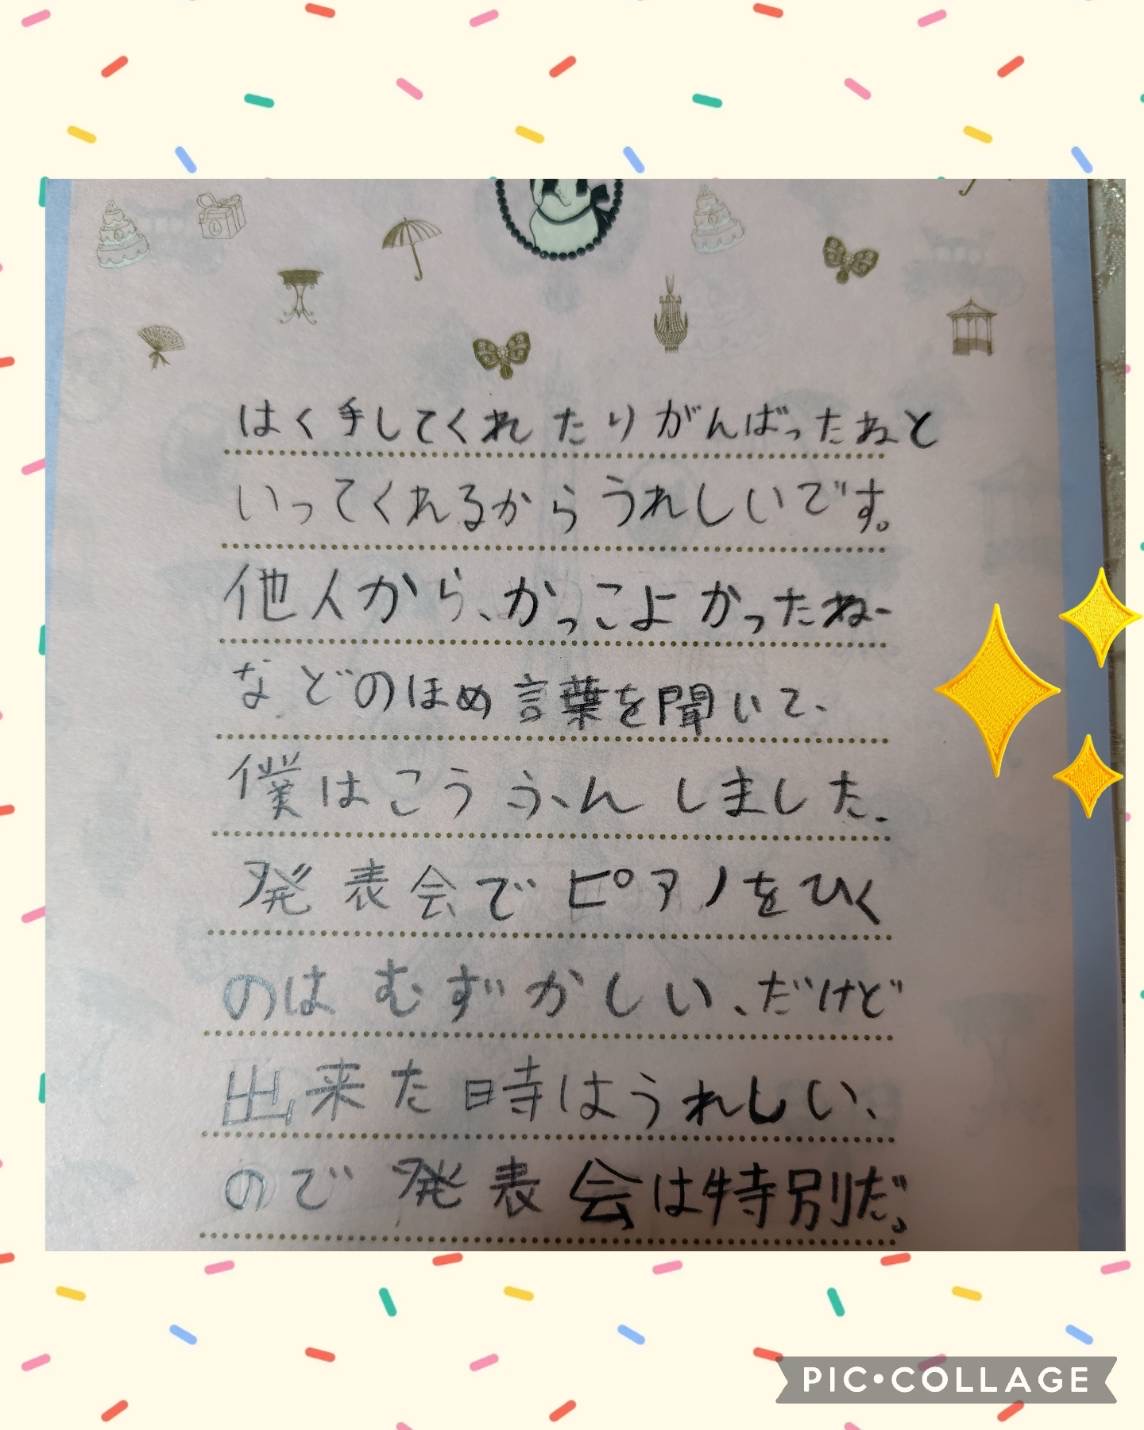 はく手してくれたりがんばったねと
いってくれるからうれしいです。
他人から、かっこよかったねー
などのほめ言葉を聞いて、
僕はこうふんしました。
発表会でピアノをひく
のはむずかしい、だけど
出来た時はうれしい、
ので発表会は特別だ。
PIC•COLLAGE